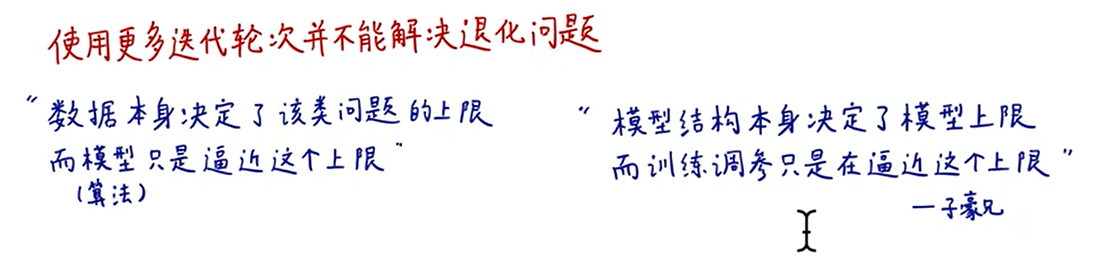 使用更多迭代轮次并不能解决退化问题
“数据本身决定了该类问题的上限
而模型只是逼近这个上限”
(算法)
“模型结构本身决定了模型上限
而训练调参只是在逼近这个上限”
—子豪兄